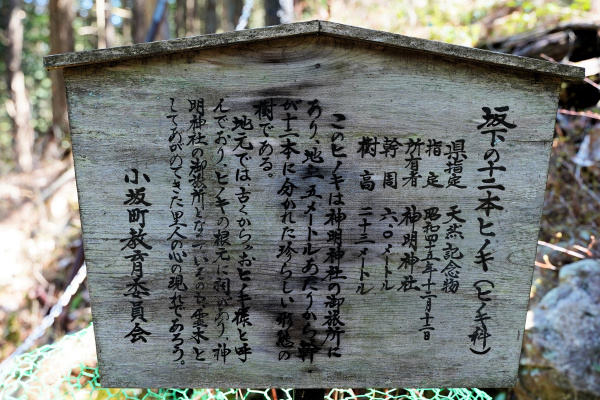 坂下の十二本ヒノキ(ヒノキ科)
県指定 天然記念物
指定 昭和四五年十一月十二日
所有者 神明神社
幹周 六・〇メートル
樹高 二十二メートル
このヒノキは神明神社の御旅所に
あり、地上五メートルあたりから、幹
が十二本に分かれた珍らしい形態の
樹である。
地元では古くから「おヒノキ様」と呼
んでおり、ヒノキの根元に祠があり、神
明神社の御旅所となっているのも霊木と
してあがめてきた里人の心の現れであろう。
小坂町教育委員会